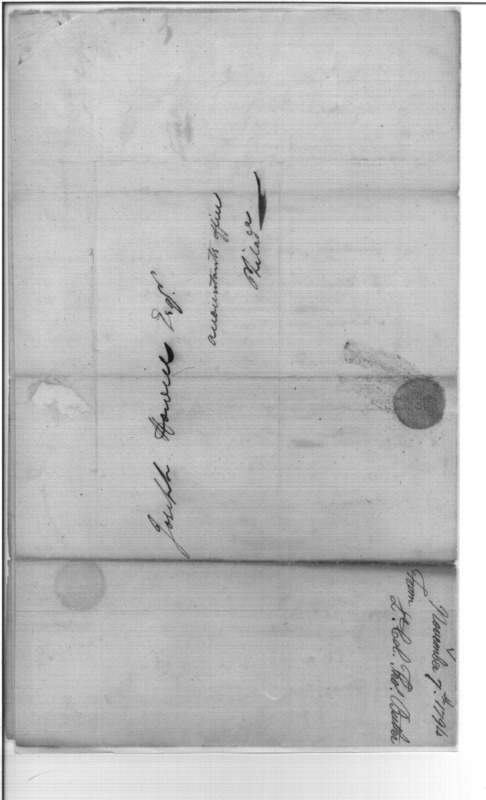 Joseph Howell Esqr.
accountants office
Philada
November 7th. 1794
From Lt. Col. Thos. Butler